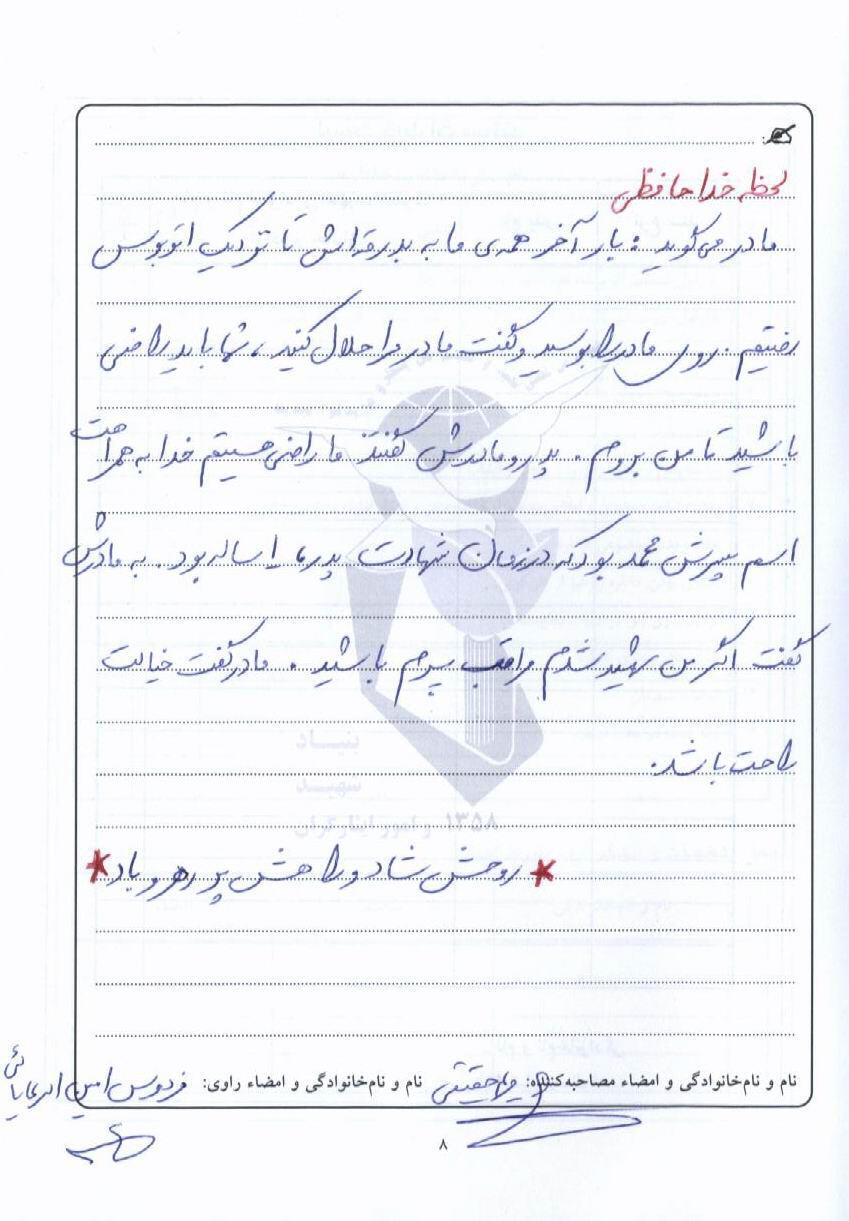 لحظه خداحافظی
مادر می‌گوید: بار آخر همه‌ی ما به بدرقه‌اش تا نزدیک اتوبوس
رفتیم. روی مادر را بوسید و گفت مادر مرا حلال کنید، شما باید راضی
باشید تا من بروم. پدر و مادرش گفتند ما راضی هستیم خدا به همراهت
اسم پسرش محمد بود که در زمان شهادت پدر ساله بود. به مادرش
گفت اگر من شهید شدم مراقب پسرم باشید. مادر گفت خیالت
راحت باشد.
* روحش شاد و راهش پر رهرو باد *
بنیاد
شهید
۱۳۵۸ و امور ایثارگران
نام و نام‌خانوادگی و امضاء مصاحبه‌کننده: نام و نام‌خانوادگی و امضاء راوی: فردوس امین
۸